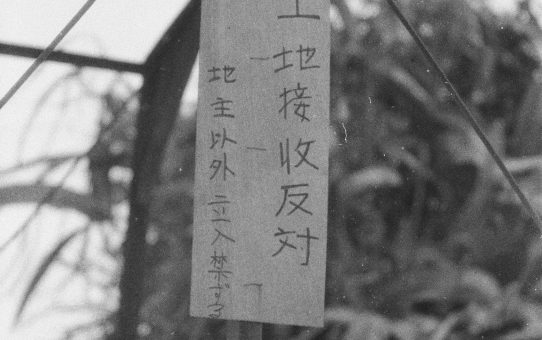 土地接收反対
地主以外立入禁ずる